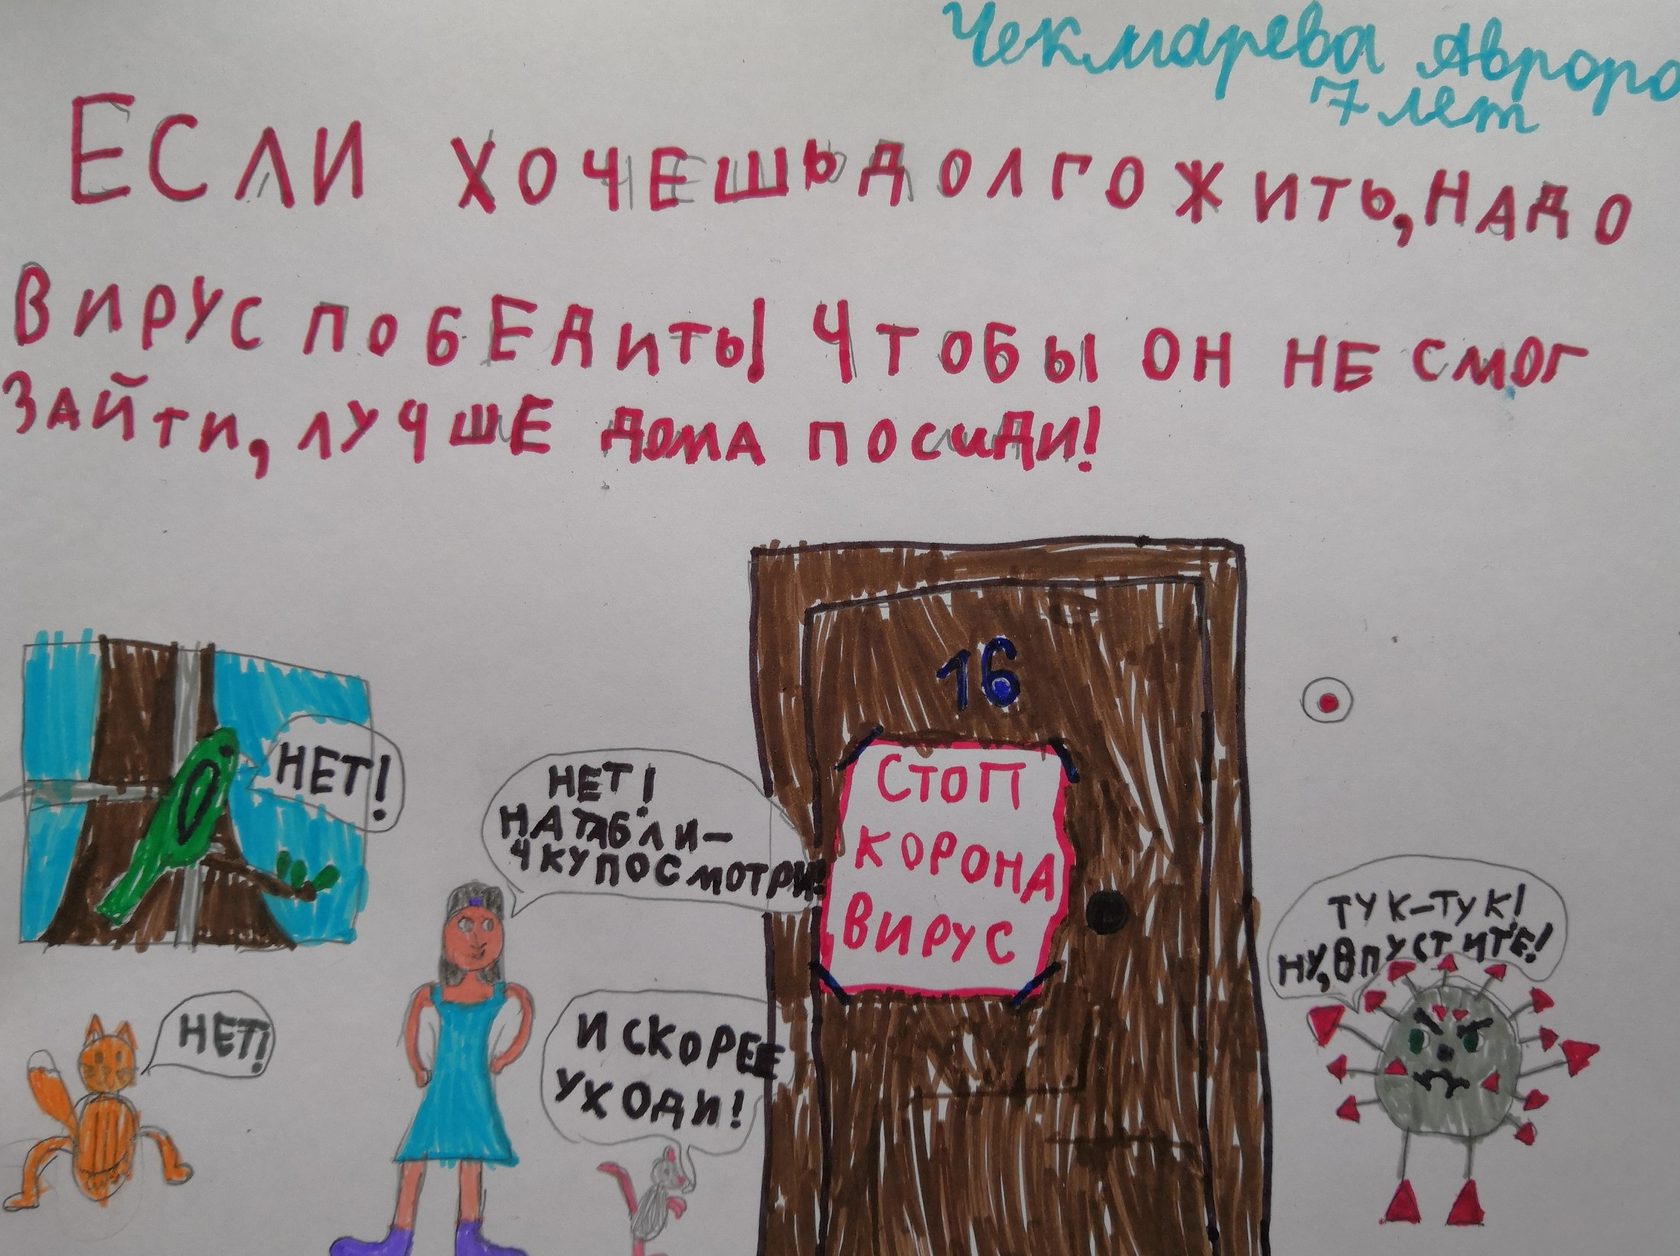 Чекмарева Авроро
7 лет
ЕСЛИ ХОЧЕШЬ ДОЛГО ЖИТЬ, НАДО
ВИРУС ПОБЕДИТЬ! ЧТОБЫ ОН НЕ СМОГ
ЗАЙТИ, ЛУЧШЕ ДОМА ПОСИДИ!
НЕТ!
НЕТ!
НА ТАБЛИ-
ЧКУ ПОСМОТРИ!
16
СТОП
КОРОНА
ВИРУС
ТУК-ТУК!
НУ, ВПУСТИТЕ!
НЕТ!
И СКОРЕЕ
УХОДИ!